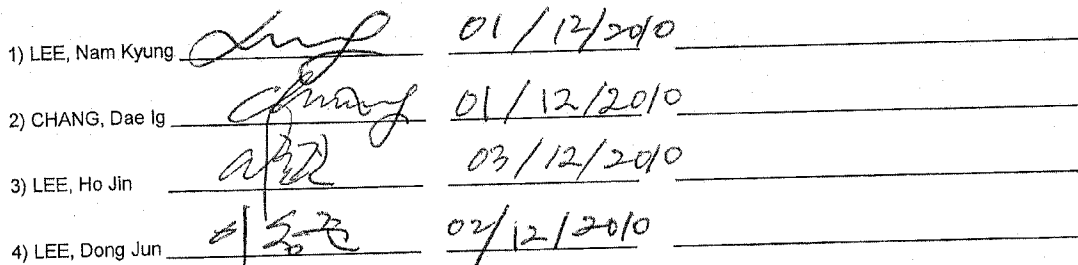 1) LEE, Nam Kyung 01/12/2010
2) CHANG, Dae Ig Chang 01/12/2010
3) LEE, Ho Jin 03/12/2010
4) LEE, Dong Jun 이동준 02/12/2010